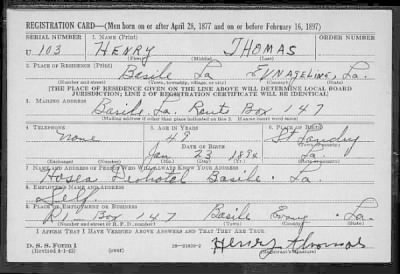 REGISTRATION CARD—(Men born on or after April 28, 1877 and on or before February 16, 1897)
SERIAL NUMBER 1. NAME (Print) ORDER NUMBER
U 103 HENRY THOMAS
(First) (Middle) (Last)
2. PLACE OF RESIDENCE (Print)
Basile La EVNAGELINE, La.
(Number and street) (Town, township, village, or city) (County) (State)
[THE PLACE OF RESIDENCE GIVEN ON THE LINE ABOVE WILL DETERMINE LOCAL BOARD
JURISDICTION; LINE 2 OF REGISTRATION CERTIFICATE WILL BE IDENTICAL]
3. MAILING ADDRESS
Basile La. Rout Box 147
[Mailing address if other than place indicated on line 2. If same insert word same]
4. TELEPHONE 5. AGE IN YEARS 6. PLACE OF BIRTH
none 48 St Landry
DATE OF BIRTH
Jan 23 1894 La.
(Exchange) (Number) (Mo.) (Day) (Yr.) (State or country)
7. NAME AND ADDRESS OF PERSON WHO WILL ALWAYS KNOW YOUR ADDRESS
Hosea Basile, La.
8. EMPLOYER'S NAME AND ADDRESS
Self.
9. PLACE OF EMPLOYMENT OR BUSINESS
Box 147 Basile Evang. La.
(Number and street or R. F. D. number) (Town) (County) (State)
I AFFIRM THAT I HAVE VERIFIED ABOVE ANSWERS AND THAT THEY ARE TRUE.
D. S. S. Form 1
(Revised 4-1-42) (over) Henry Thomas